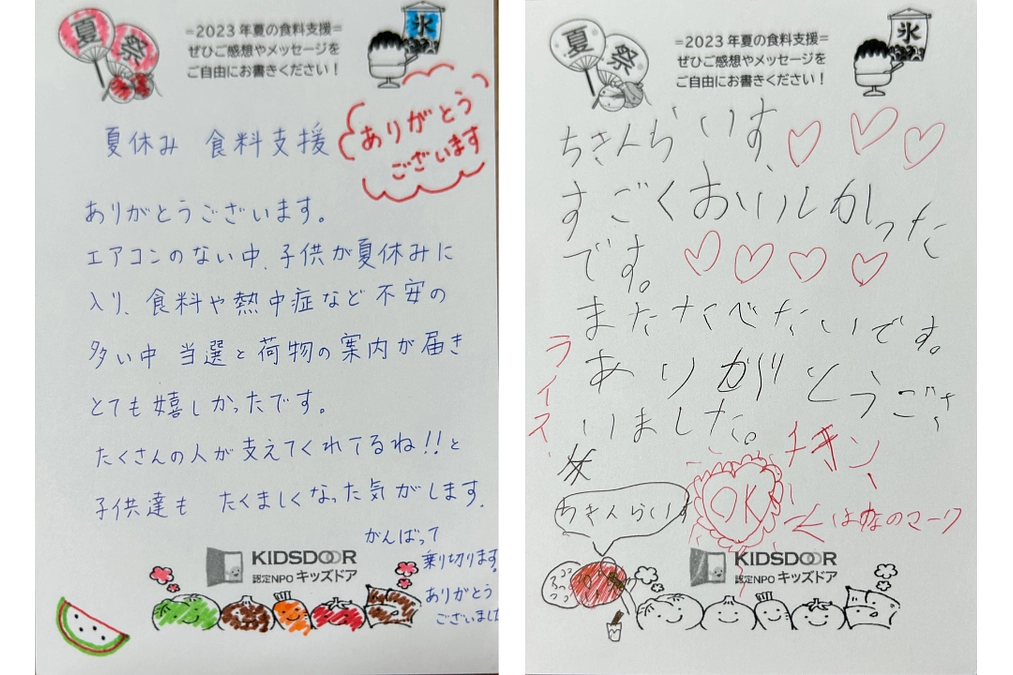 夏祭
=2023年夏の食料支援=
ぜひご感想やメッセージを
ご自由にお書きください！
氷
夏休み 食料支援
ありがとう
ございます
ありがとうございます。
エアコンのない中、子供が夏休みに
入り、食料や熱中症など不安の
多い中 当選と荷物の案内が届き
とても嬉しかったです。
たくさんの人が支えてくれてるね!!と
子供達も たくましくなった気がします.
がんばって
乗り切ります。
ありがとう
ございました
KIDSDOOR
認定NPO キッズドア
夏祭
=2023年夏の食料支援=
ぜひご感想やメッセージを
ご自由にお書きください！
氷
ちきんらいす、
すごくおいしかった
です。
またたべたいです。
ありがとうござ
いました。
ライス
チキン
ちきんらいす
OK
はなのマーク
ココココ
KIDSDOOR
認定NPO キッズドア